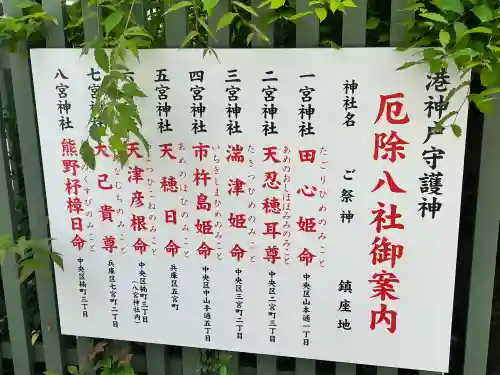 港神戸守護神
厄除八社御案内
神社名 ご祭神 鎮座地
一宮神社 田心姫命 たごりひめのみこと 中央区山本通一丁目
二宮神社 天忍穂耳尊 あめのおしほほみのみこと 中央区二宮町三丁目
三宮神社 湍津姫命 たきつひめのみこと 中央区三宮町二丁目
四宮神社 市杵島姫命 いちきしまひめのみこと 中央区中山手通五丁目
五宮神社 天穂日命 あめのほひのみこと 兵庫区五宮町
六 天津彦根命 つひこねのみこと 中央区楠町三丁目
(八宮神社内)
七宮神社 大己貴尊 なむちのみこと 兵庫区七宮町二丁目
八宮神社 熊野杼樟日命 くすびのみこと 中央区楠町三丁目